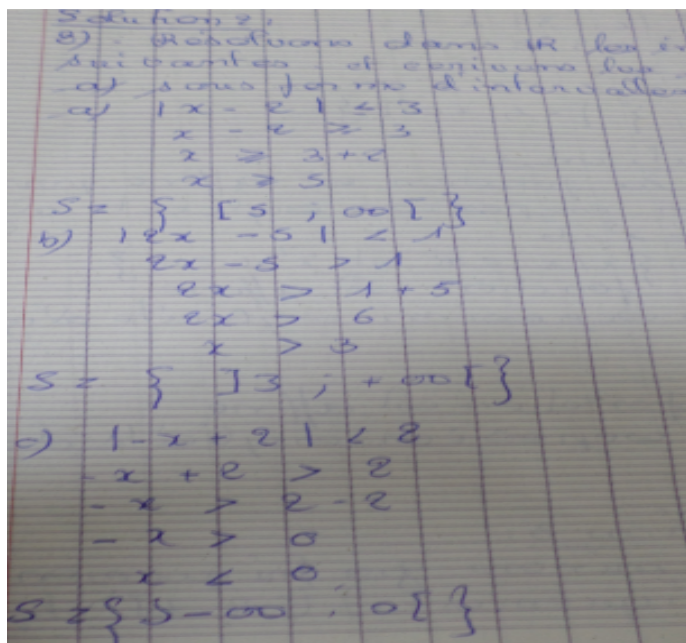 Solution 2:
8) Résolvons dans IR les in
suivantes et écrivons les
a) sous forme d'intervalles
a) |x - 2| ≤ 3
x - 2 ≥ 3
x ≥ 3 + 2
x ≥ 5
S = { [5 ; ∞[ }
b) |2x - 5| < 1
2x - 5 > 1
2x > 1 + 5
2x > 6
x > 3
S = { ]3 ; +∞[ }
c) |-x + 2| < 2
-x + 2 > 2
-x > 2 - 2
-x > 0
x < 0
S = { ]-∞ ; 0[ }